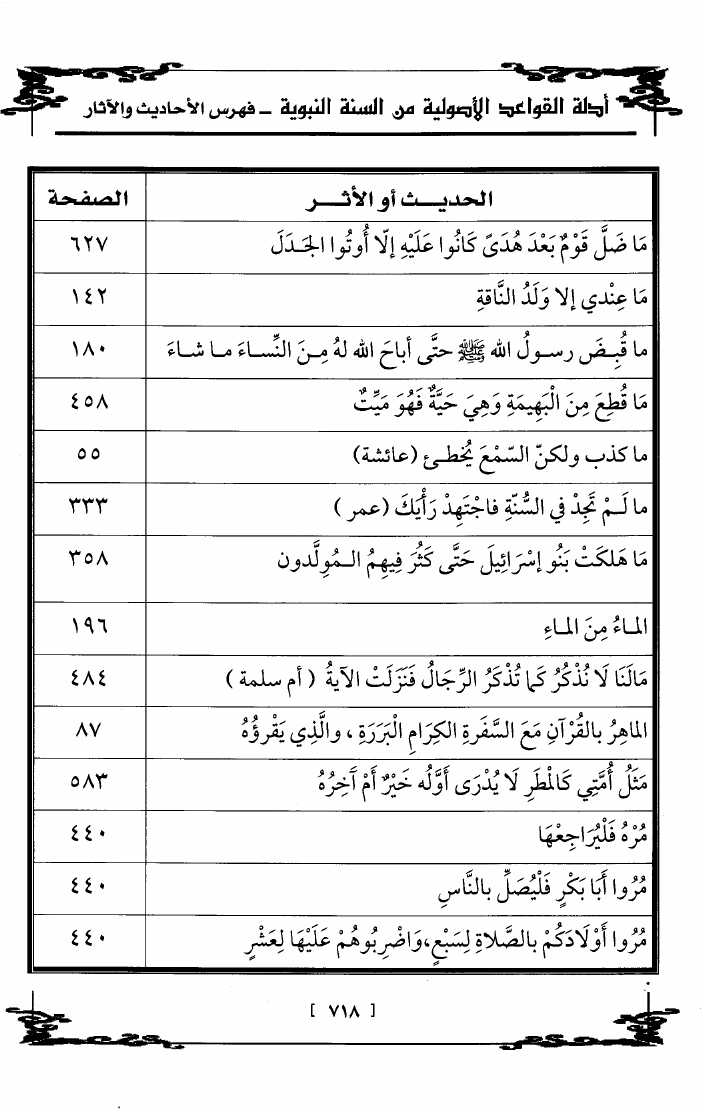 أدلة القواعد الأصولية من السنة النبوية ـ فهرس الأحاديث والآثار
الحديـــث أو الأثـــر الصفحة
مَا ضَلَّ قَوْمٌ بَعْدَ هُدَىً كَانُوا عَلَيْهِ إلّا أُوتُوا الجَدَلَ ٦٢٧
مَا عِنْدي إلا وَلَدُ النَّاقةِ ١٤٢
ما قُبِـضَ رسـولُ الله ﷺ حتَّى أباحَ الله لهُ مِـنَ النِّساءَ مـا شاءَ ١٨٠
مَا قُطِعَ مِنَ الْبَهِيمَةِ وَهِيَ حَيَّةٌ فَهُوَ مَيِّتٌ ٤٥٨
ما كذب ولكنّ السّمْعَ يُخطـئ (عائشة) ٥٥
ما لَـمْ تَجِدْ في السُّنّةِ فاجْتَهِدْ رَأْيَكَ (عمر) ٣٣٣
مَا هَلكَتْ بَنُو إسْرَائِيلَ حَتَّى كَثُرَ فِيهِمُ الـمُوِلَّدون ٣٥٨
المـاءُ مِنَ المـاءِ ١٩٦
مَالَنَا لَا نُذْكَرُ كَما تُذْكَرُ الرِّجَالُ فَنَزَلَتْ الآيةُ (أم سلمة) ٤٨٤
الماهِرُ بالقُرْآنِ مَعَ السَّفَرةِ الكِرَامِ الْبَرَرَةِ ، والَّذِي يَقْرؤُهُ ٨٧
مَثَلُ أُمَّتِي كَالمْطَرِ لَا يُدْرَى أَوَّلُه خَيْرٌ أَمْ آخِرُهُ ٥٨٣
مُرْهُ فَلْيُرَاجِعْهَا ٤٤٠
مُرُوا أَبَا بَكْرٍ فَلْيُصَلِّ بالنَّاسِ ٤٤٠
مُرُوا أَوْلَادَكُمْ بالصَّلاةِ لِسَبْعٍ،وَاضْرِبُوهُمْ عَلَيْهَا لِعَشْرٍ ٤٤٠
[ ٧١٨ ]